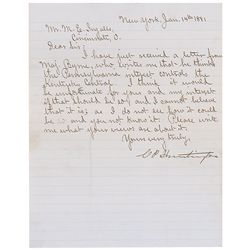 New York, Jan. 14th 1881.
Mr. M. E. Ingalls,
Cincinnati, O.
Dear Sir:
I have just received a letter from
Maj. Payne, who writes me that he thinks
the Pennsylvania interest controls the
Kentucky Central. I think it would
be unfortunate for you, and my interest
if that should be so; and I cannot believe
that it is; as I do not see how it could
be so and you not know it. Please write
me what your views are about it.
Yours very truly,
C P Huntington